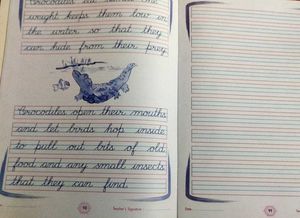 Crocodiles eat
weight keeps them low in
the water so that they
can hide from their prey.
Crocodiles open their mouths
and let birds hop inside
to pull out bits of old
food and any small insects
that they can find.
Teacher's Signature
Date